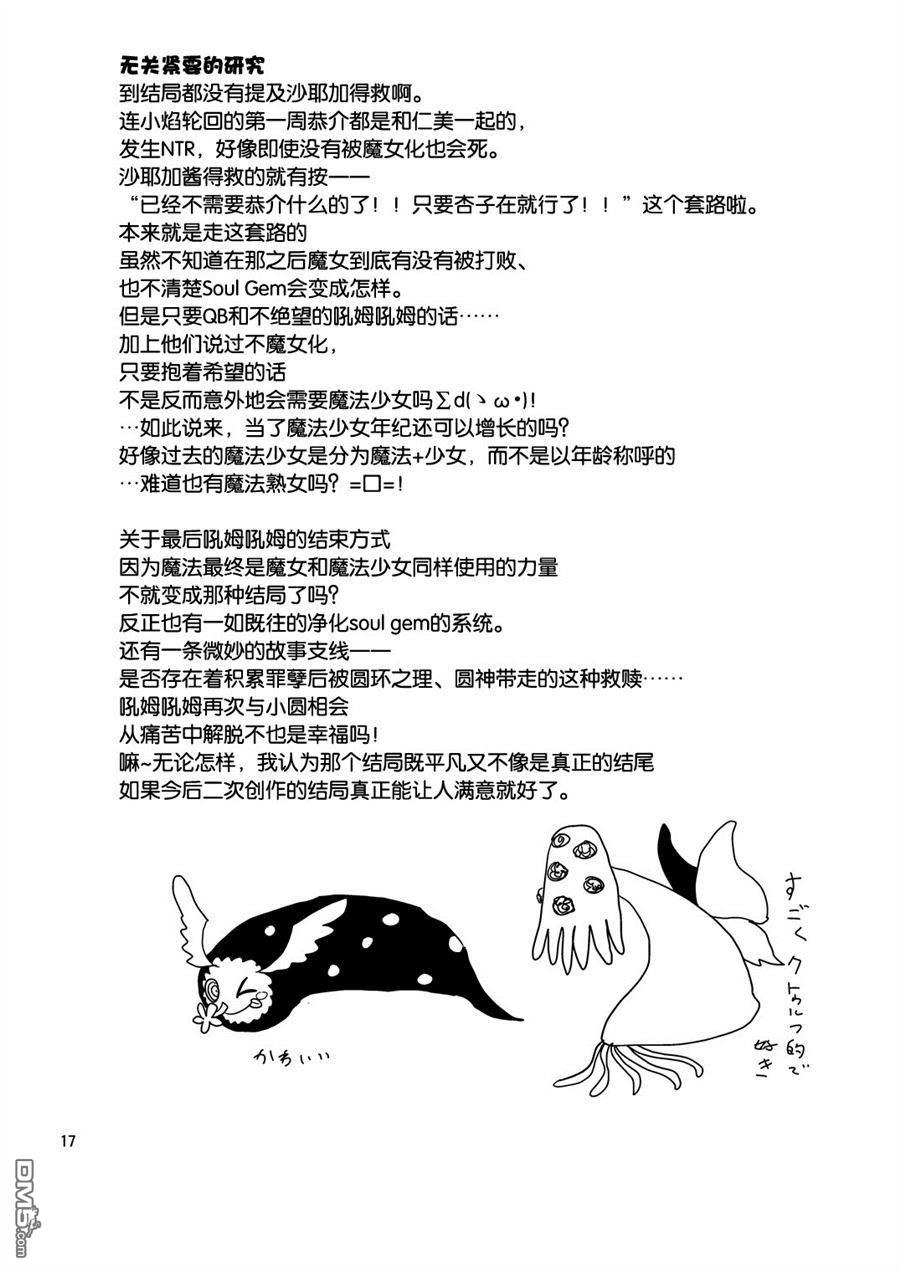 无关紧要的研究
到结局都没有提及沙耶加得救啊。
连小焰轮回的第一周恭介都是和仁美一起的，
发生NTR，好像即使没有被魔女化也会死。
沙耶加酱得救的就有按——
“已经不需要恭介什么的了！！只要杏子在就行了！！”这个套路啦。
本来就是走这套路的
虽然不知道在那之后魔女到底有没有被打败、
也不清楚Soul Gem会变成怎样。
但是只要QB和不绝望的吼姆吼姆的话……
加上他们说过不魔女化，
只要抱着希望的话
不是反而意外地会需要魔法少女吗∑d(ヽω•)!
…如此说来，当了魔法少女年纪还可以增长的吗？
好像过去的魔法少女是分为魔法+少女，而不是以年龄称呼的
…难道也有魔法熟女吗？=口=！
关于最后吼姆吼姆的结束方式
因为魔法最终是魔女和魔法少女同样使用的力量
不就变成那种结局了吗？
反正也有一如既往的净化soul gem的系统。
还有一条微妙的故事支线——
是否存在着积累罪孽后被圆环之理、圆神带走的这种救赎……
吼姆吼姆再次与小圆相会
从痛苦中解脱不也是幸福吗！
嘛~无论怎样，我认为那个结局既平凡又不像是真正的结尾
如果今后二次创作的结局真正能让人满意就好了。
かわいい
すごくクトゥルフ的で
好き
17
DM5.com